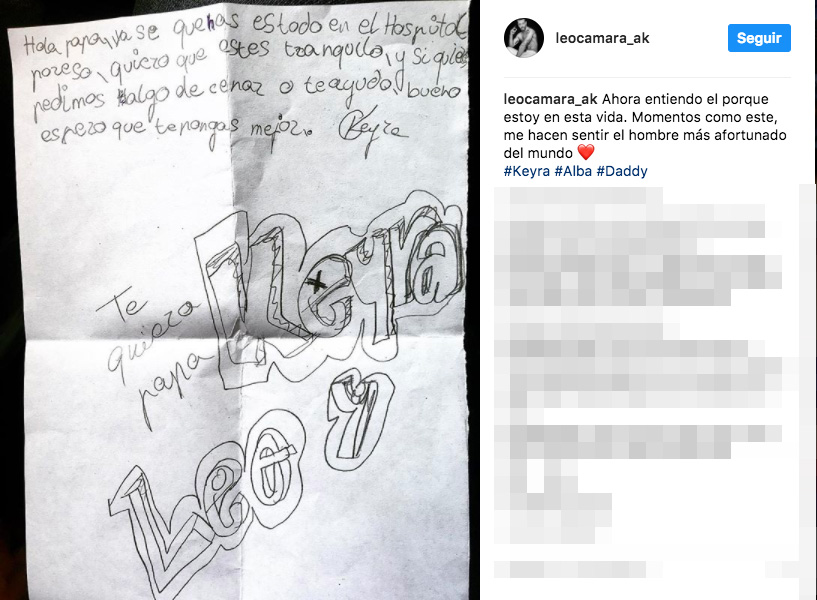 Hola papa, ya se que has estado en el Hospital
poreso, quiero que estes tranquilo, y si quie
pedimos algo de cenar o te ayudo, bueno
espero que te pongas mejor. Keyra
Te
quiero
papa
Keyra
y
Leo
leocamara_ak
Seguir
leocamara_ak Ahora entiendo el porque
estoy en esta vida. Momentos como este,
me hacen sentir el hombre más afortunado
del mundo ❤️
#Keyra #Alba #Daddy